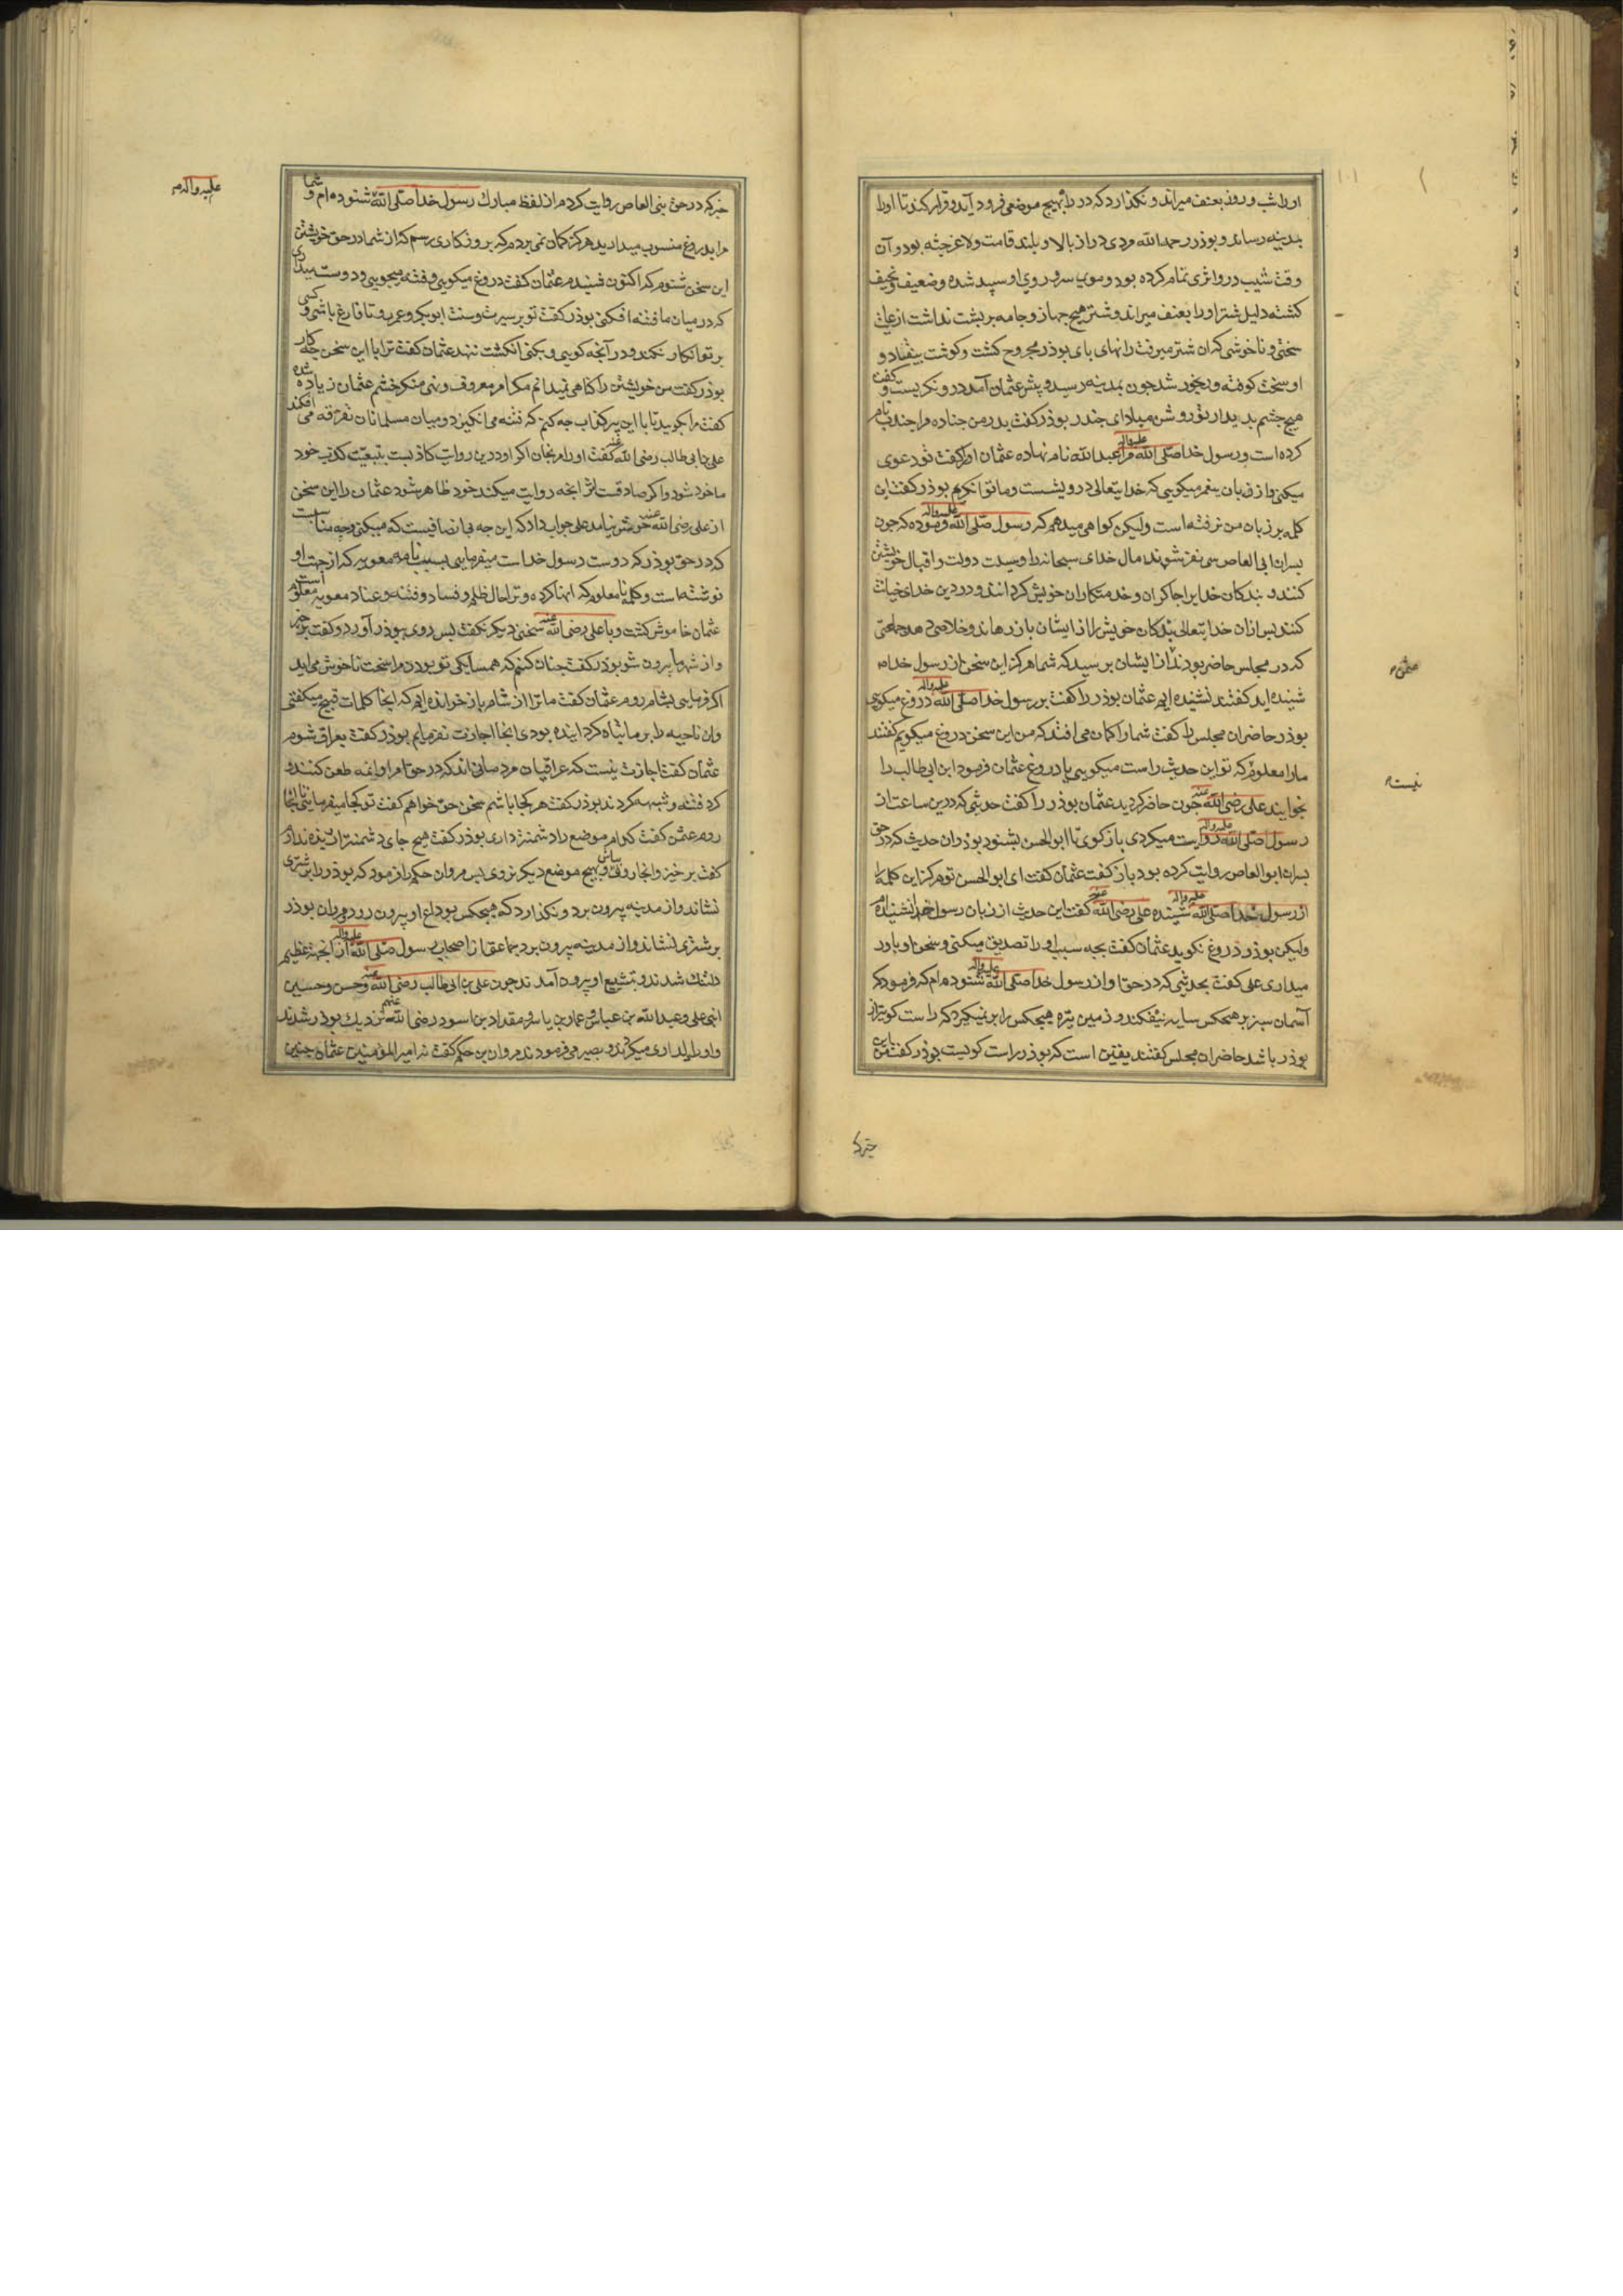 اورا شب و روز بعنف میراند و نکذارد که در راه بهیچ موضعی فرود آید و قرار کند تا اورا
بمدینه رساند و بوذر رحمه الله مردی دراز بالا و بلند قامت و لاغر جثه بود و آن
وقت شیب درو اثری تمام کرده بود و موی سر و روی او سپید شده و ضعیف و نحیف
کشته دلیل شتر اورا بعنف میراند و شتر هیچ جهاز و جامه بر پشت نداشت از غایت
سختی و ناخوشی که آن شتر میرفت رانهای پای بوذر مجروح کشت و کوشت بیفتاد و
او سخت کوفته و رنجور شد جون بمدینه رسید و پیش عثمان آمد درو نکریست و کفت
هیج جشم بدیدار تو روشن مباد ای جندب بوذر کفت بدر من جناده مرا جندب نام
کرده است و رسول خدا صلی الله علیه واله مرا عبد الله نام نهاده عثمان اورا کفت تو دعوی
میکنی و از زبان ما میکویی که خدایتعالی درویشست و ما توانکریم بوذر کفت این
کلمه بر زبان من نرفته است ولیکن کواهی میدهم که رسول صلی الله علیه واله فرموده که جون
بسران ابی العاص سی نفر شوند مال خدای سبحانه را وسیلت دولت و اقبال خویشتن
کنند و بندکان خدایرا جاکران و خدمتکاران خویش کردانند و در دین خدای خیانت
کنند بس ازان خدایتعالی بندکان خویش را از ایشان باز رهاند و خلاصی دهد جماعتی
که در مجلس حاضر بودند از ایشان برسید که شما هرکز این سخن از رسول خدا
عثمن
شنیده اید کفتند نشنیده ایم عثمان بوذر را کفت بر رسول خدا صلی الله علیه واله دروغ میکویی
بوذر حاضران مجلس را کفت شما را کمان می افتد که من این سخن دروغ میکویم کفتند
مارا معلوم که تو این حدیث راست میکویی یا دروغ عثمان فرمود ابن ابی طالب را
نیست
بخوانید علی رضی الله عنه جون حاضر کردید عثمان بوذر را کفت حدیثی که درین ساعت از
رسول صلی الله علیه واله روایت میکردی باز کوی تا ابو الحسن بشنود بوذر آن حدیث که در حق
بسران ابو العاص روایت کرده بود باز کفت عثمان کفت ای ابو الحسن تو هرکز این کلمه را
از رسول خدا صلی الله علیه واله شنیده علی رضی الله عنه کفت این حدیث از زبان رسول خدا نشنیده ام
ولیکن بوذر دروغ نکوید عثمان کفت بجه سبب اورا تصدیق میکنی و سخن او باور
میداری علی کفت بحدیثی که در حق او از رسول خدا صلی الله علیه واله شنوده ام که فرمود که
آسمان سبز بر هیجکس سایه نیفکند و زمین تیره هیجکس را بر نمیکیرد که راست کوی تر از
بوذر باشد حاضران مجلس کفتند یقین است که بوذر راست کویست بوذر کفت من این
خبر که
خبر که در حق بنی العاص روایت کردم از لفظ مبارک رسول خدا صلی الله شنوده ام و شما
علیه واله
مرا بدروغ منسوب میدارید هرکز کمان نمی بردم که بروزکاری رسم که از شما در حق خویشتن
این سخن شنوم که اکنون شنیدم عثمان کفت دروغ میکویی و فتنه میجویی و دوست میداری
که در میان ما فتنه افکنی بوذر کفت تو بر سیرت و سنت ابو بکر و عمر رو تا فارغ باشی و کسی
بر تو انکار نکند و در آنجه کویی و بکنی انکشت ننهد عثمان کفت ترا با این سخن جه کار
بوذر کفت من خویشتن را کناهی نمیدانم مکر امر معروف و نهی منکر خشم عثمان زیاده شده
کفت مرا بکویید تا با این پیر کذاب جه کنم که فتنه می انکیزد و میان مسلمانان تفرقه می افکند
علی بن ابی طالب رضی الله عنه کفت اورا مرنجان اکر او درین روایت کاذبست بتبعیت کذب خود
ماخوذ شود و اکر صادقست اثر انجه روایت میکند خود ظاهر شود عثمان را این سخن
از علی رضی الله عنه خوش نیامد علی جواب داد که این جه بی انصافیست که میکنی و جه مناسبت
که در حق بوذر که دوست رسول خداست میفرمایی بسبب نامه معویه که از جهت او
نوشته است و کلمه نا معلوم که انها کرده و ترا حال ظلم و فساد و فتنه و عناد معویه معلوم است
عثمان خاموش کشت و با علی رضی الله عنه سخنی دیکر نکفت بس روی ببوذر آورد و کفت بر خیز
و از شهر ما بیرون شو بوذر کفت جنان کنم که همسایکی تو بودن مرا سخت ناخوش می اید
اکر فرمایی بشام روم عثمان کفت ما ترا از شام باز خوانده ایم که انجا کلمات قبیح میکفتی
وان ناحیه را بر ما تباه کردانیده بودی انجا اجازت نفرمایم بوذر کفت بعراق شوم
عثمان کفت اجازت نیست که عراقیان مردمانی اند که در حق امرا و ائمه طعن کنند و
کرد فتنه و شبهه کردند بوذر کفت هر کجا باشم سخن حق خواهم کفت تو کجا میفرمایی تا انجا
روم عثمن کفت کدام موضع را دشمنتر داری بوذر کفت هیج جای دشمنتر از ربذه ندارم
کفت بر خیز و انجا رو و بهیج موضع دیکر نروی بس مروان حکم را فرمود که بوذر را بر شتری
نشاند و از مدینه بیرون برد و نکذارد که هیجکس بوداع او بیرون رود مروان بوذر
بر شتری نشاند و از مدینه بیرون برد جماعتی از اصحاب رسول صلی الله علیه واله از انجهت عظیم
دلتنک شدند و بتشییع او بیرون آمدند جون علی بن ابی طالب رضی الله عنه و حسن و حسین
ابنی علی و عبد الله بن عباس و عمار بن یاسر و مقداد بن اسود رضی الله عنهم نزدیک بوذر شدند
و اورا دلداری میکردند و بصبر می فرمودند مروان بن حکم کفت نه امیر المؤمنین عثمان جنین